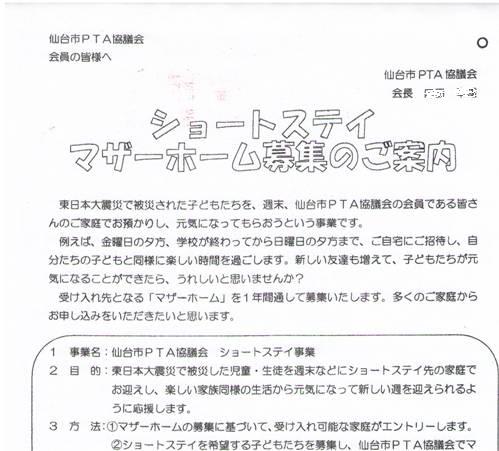 仙台市PTA協議会
会員の皆様へ
仙台市PTA協議会
会長
ショートステイ
マザーホーム募集のご案内
東日本大震災で被災された子どもたちを、週末、仙台市PTA協議会の会員である皆さ
んのご家庭でお預かりし、元気になってもらおうという事業です。
例えば、金曜日の夕方、学校が終わってから日曜日の夕方まで、ご自宅にご招待し、自
分たちの子どもと同様に楽しい時間を過ごします。新しい友達も増えて、子どもたちが元
気になることができたら、うれしいと思いませんか？
受け入れ先となる「マザーホーム」を1年間通して募集いたします。多くのご家庭から
お申し込みをいただきたいと思います。
1 事業名：仙台市PTA協議会 ショートステイ事業
2 目 的：東日本大震災で被災した児童・生徒を週末などにショートステイ先の家庭で
お迎えし、楽しい家族同様の生活から元気になって新しい週を迎えられるよ
うに応援します。
3 方 法：①マザーホームの募集に基づいて、受け入れ可能な家庭がエントリーします。
②ショートステイを希望する子どもたちを募集し、仙台市PTA協議会でマ